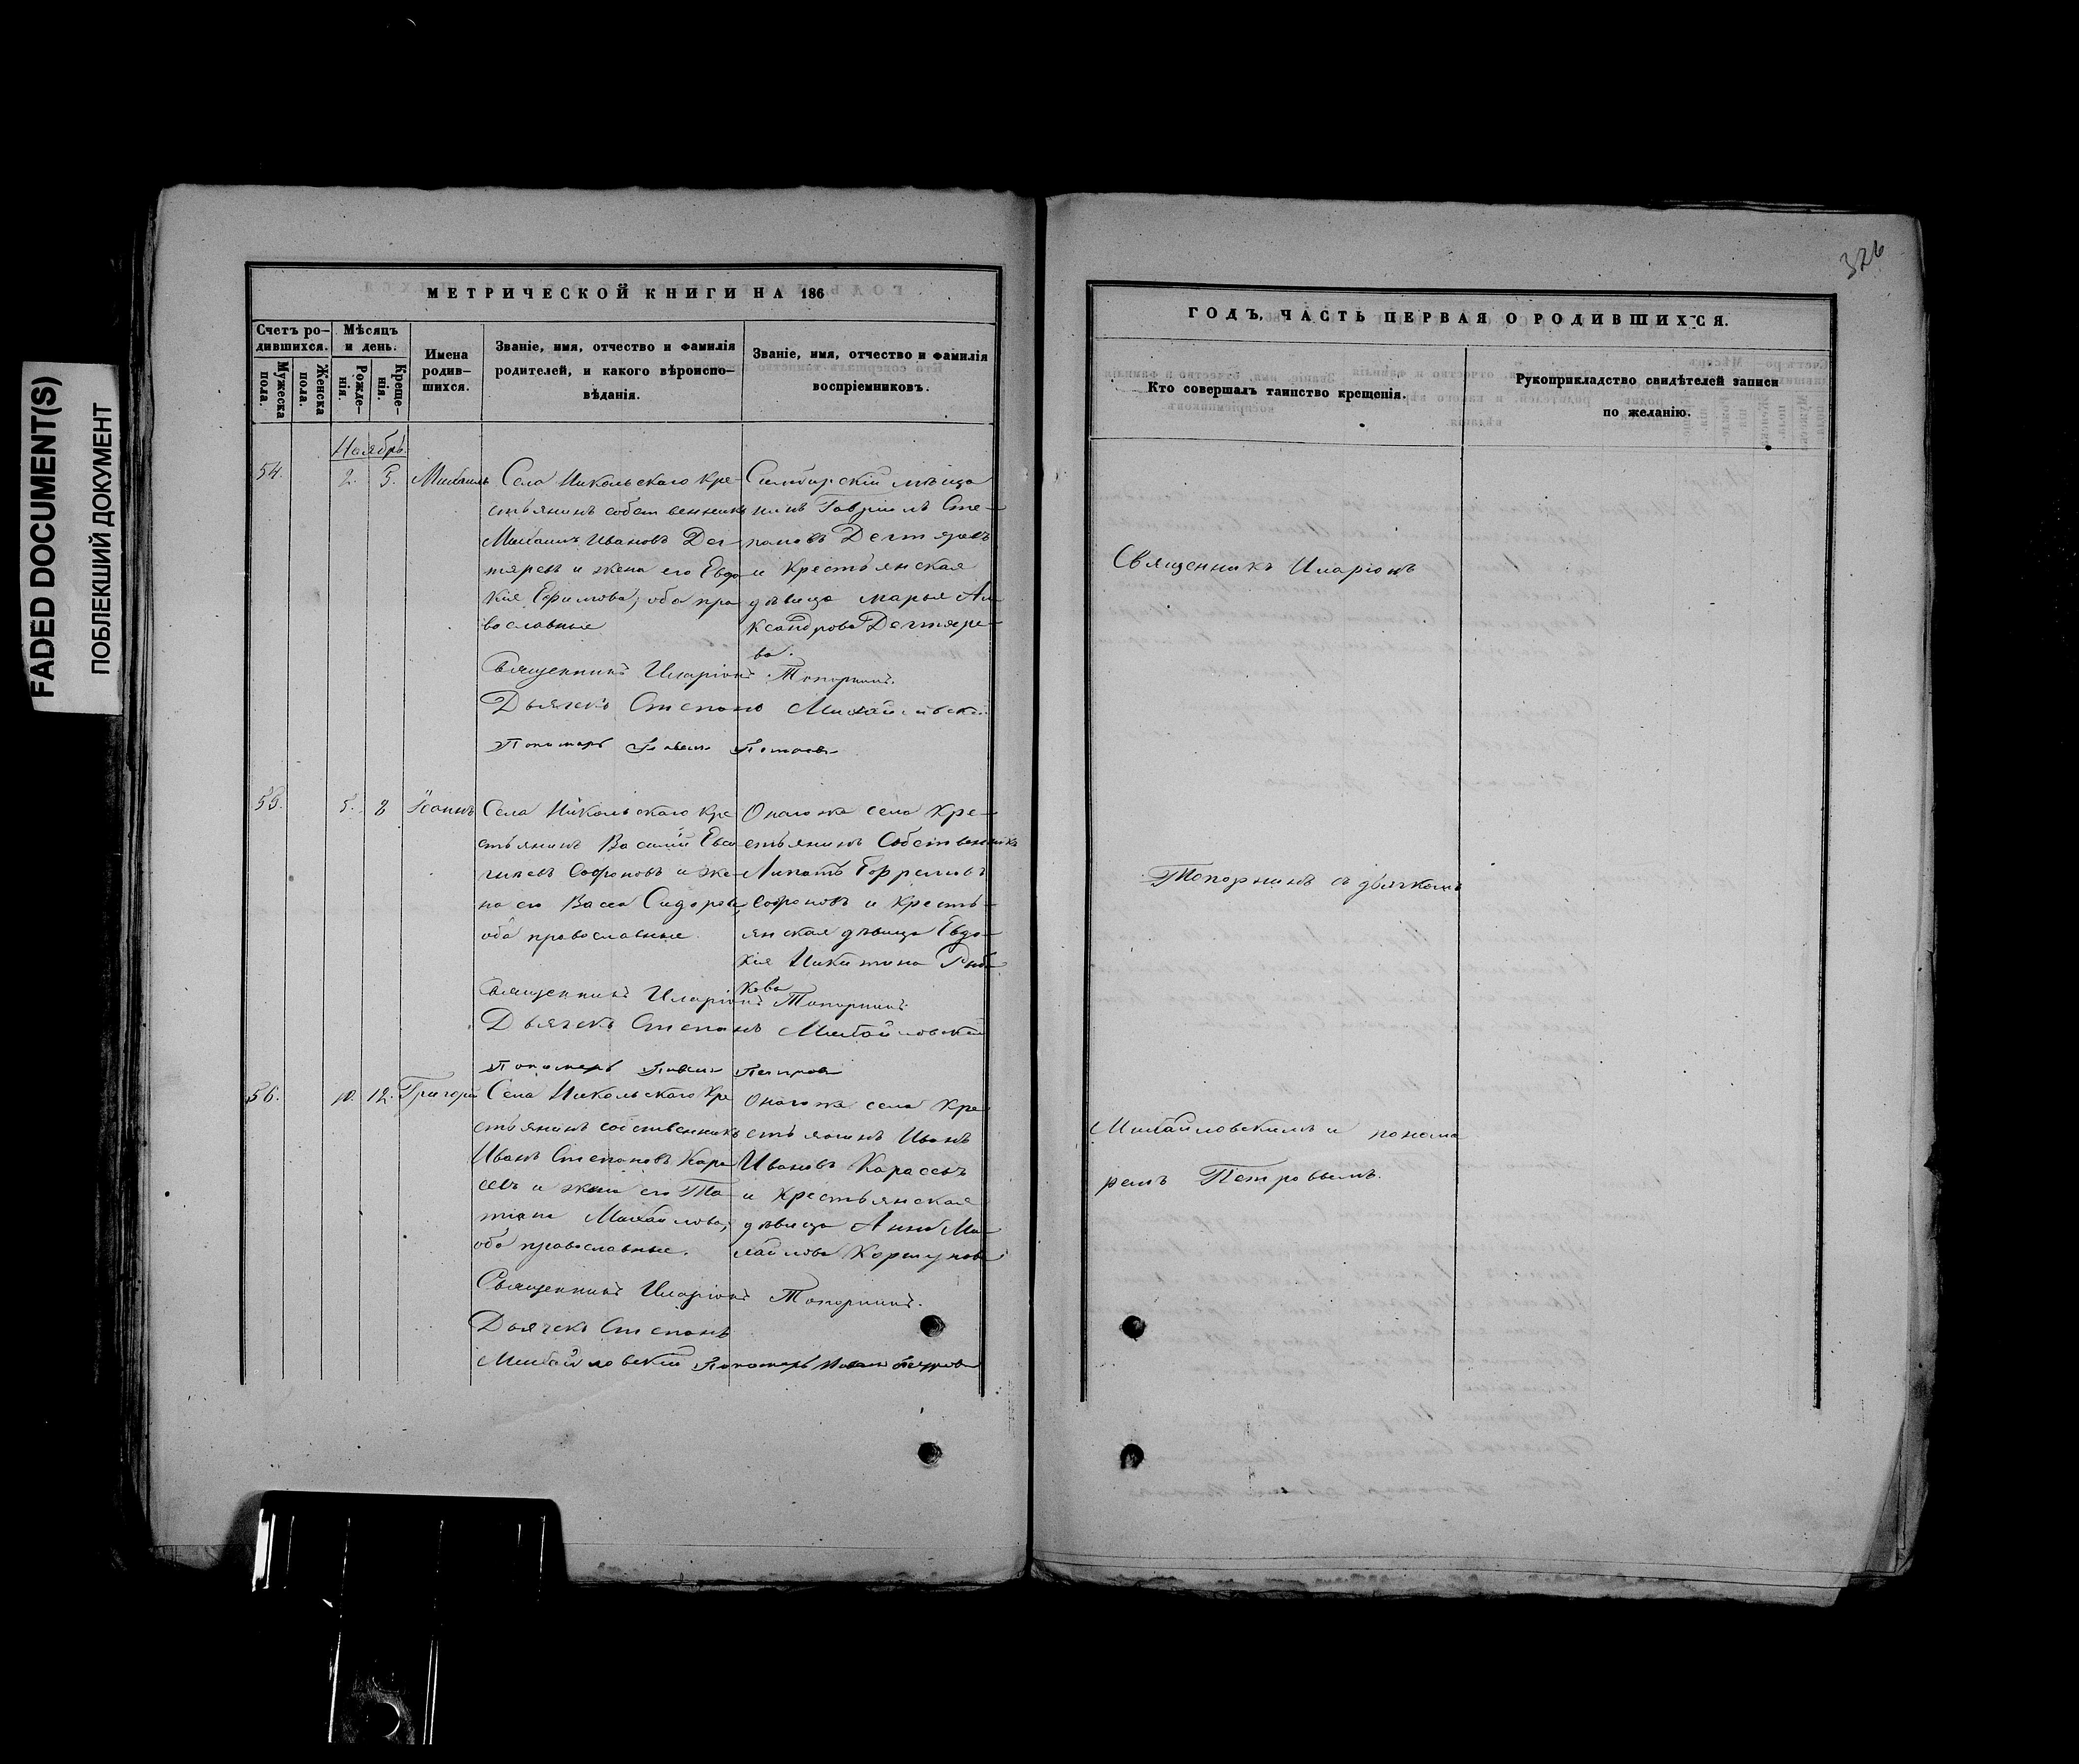 FADED DOCUMENT(S)
ПОБЛЕКШИЙ ДОКУМЕНТ
МЕТРИЧЕСКОЙ КНИГИ НА 186
Счетъ ро-
дившихся.
Мужеска
пола.
Женска
пола.
Мѣсяцъ
и день.
Рожде-
нія.
Креще-
нія.
Имена
родив-
шихся.
Званіе, имя, отчество и фамилія
родителей, и какого вѣроиспо-
вѣданія.
Званіе, имя, отчество и фамилія
воспріемниковъ.
Ноябрь.
54.
2.
5.
Михаилъ
Села Никольскаго кре-
стьянинъ собственникъ
Михаилъ Ивановъ Дег-
тяревъ и жена его Евдо
кія Ефимова, оба пра
вославные
Симбирскій мѣща
нинъ Гавріилъ Сте-
пановъ Дегтяревъ
и крестьянская
дѣвица Марья Але
ксандрова Дегтяре-
ва.
Священникъ Иларіонъ Топорнинъ.
Дьячекъ Степанъ Михайловскій
Пономарь Павелъ Петровъ
55.
5.
8
Іоаннъ
Села Никольскаго кре
стьянинъ Василій Евси
гнеевъ Софроновъ и же-
на его Васса Сидорова,
оба православные.
Онаго же села кре-
стьянинъ Собственникъ
Липатъ Ефремовъ
Софроновъ и кресть-
янская дѣвица Евдо-
кія Никитина Рыба
кова
Священникъ Иларіонъ Топорнинъ.
Дьячекъ Степанъ Михайловскій
Пономарь Павелъ Петровъ
56.
10.
12.
Григорій
Села Никольскаго кре
стьянинъ собственникъ
Иванъ Степановъ Кара
севъ и жена его Та
тіана Михайлова,
оба православные.
Онаго же села кре
стьянинъ Иванъ
Ивановъ Карасевъ
и крестьянская
дѣвица Анна Ми
хайлова Коршунова
Священникъ Иларіонъ Топорнинъ.
Дьячекъ Степанъ
Михайловскій Пономарь Павелъ Петровъ
326
ГОДЪ, ЧАСТЬ ПЕРВАЯ О РОДИВШИХСЯ.
Кто совершалъ таинство крещенія.
Рукоприкладство свидѣтелей записи
по желанію.
Священникъ Иларіонъ
Топорнинъ съ дьячкомъ
Михайловскимъ и понома
ремъ Петровымъ.